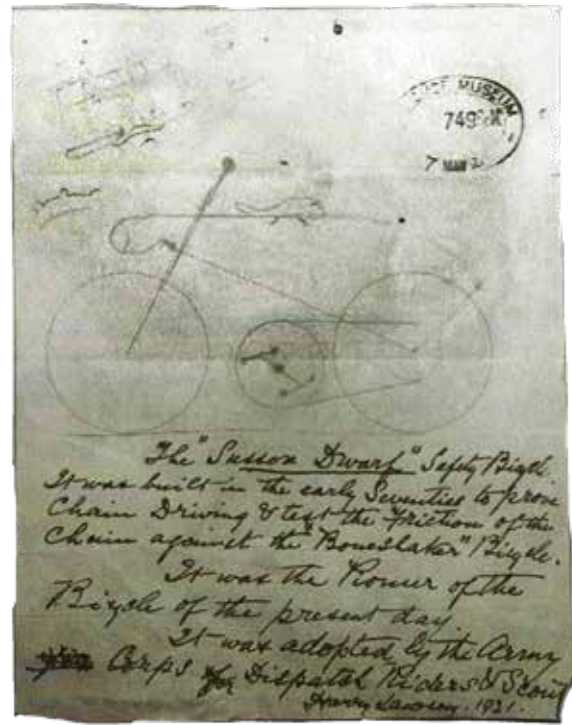 MUSEUM
749
7 MAR 2
The "Sussex Dwarf" Safety Bicycle.
It was built in the early Seventies to prove
Chain Driving & test the Friction of the
Chain against the "Boneshaker" Bicycle.
It was the Pioneer of the
Bicycle of the present day.
It was adopted by the Army
Corps for Dispatch Riders & Scout
Harry Lawson. 1921.